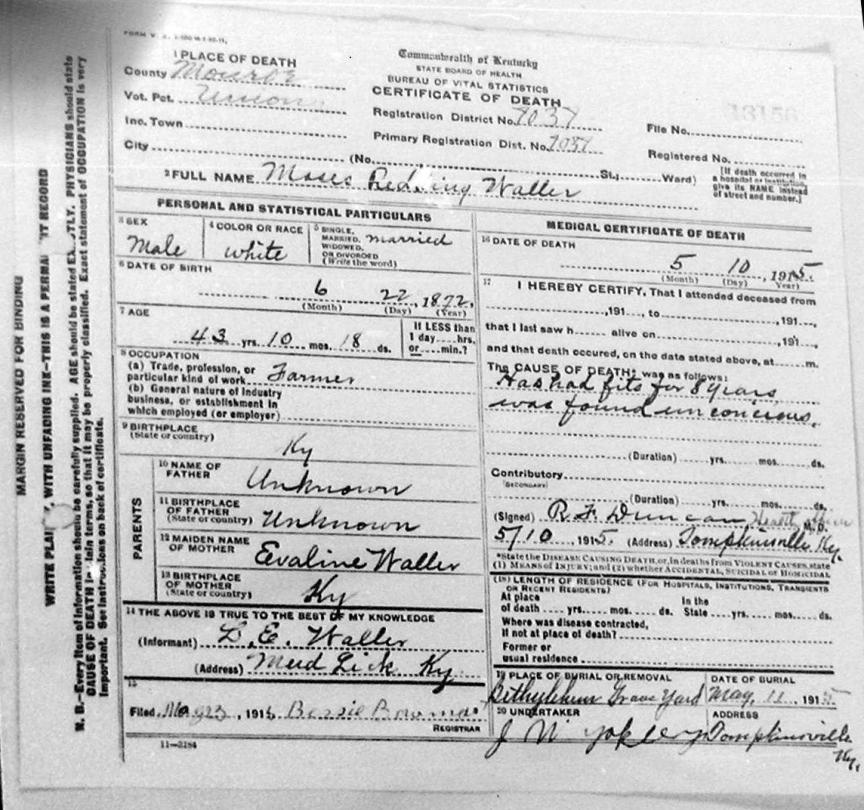 FORM V. S.
1 PLACE OF DEATH
County Monroe
Vot. Pct. Union
Inc. Town
City (No. St.; Ward)
Commonwealth of Kentucky
STATE BOARD OF HEALTH
BUREAU OF VITAL STATISTICS
CERTIFICATE OF DEATH
Registration District No. 1037
Primary Registration Dist. No. 1037
13156
File No.
Registered No.
[If death occurred in
a hospital or institution,
give its NAME instead
of street and number.]
2 FULL NAME Moses Waller
PERSONAL AND STATISTICAL PARTICULARS
3 SEX
Male
4 COLOR OR RACE
white
5 SINGLE,
MARRIED, married
WIDOWED,
OR DIVORCED
(Write the word)
6 DATE OF BIRTH
6 22, 1872.
(Month) (Day) (Year)
7 AGE
43 yrs. 10 mos. 18 ds.
If LESS than
1 day....hrs.
or....min.?
8 OCCUPATION
(a) Trade, profession, or
particular kind of work Farmer
(b) General nature of Industry
business, or establishment in
which employed (or employer)
9 BIRTHPLACE
(State or country)
Ky
PARENTS
10 NAME OF
FATHER
Unknown
11 BIRTHPLACE
OF FATHER
(State or country) Unknown
12 MAIDEN NAME
OF MOTHER
Evaline Waller
13 BIRTHPLACE
OF MOTHER
(State or country)
Ky
14 THE ABOVE IS TRUE TO THE BEST OF MY KNOWLEDGE
(Informant) D. E. Waller
(Address) Mud Lick Ky.
15
Filed , 1915 Bessie
REGISTRAR
11—3184
MEDICAL CERTIFICATE OF DEATH
16 DATE OF DEATH
5 10, 1915.
(Month) (Day) (Year)
17
I HEREBY CERTIFY, That I attended deceased from
,191..., to ,191...,
that I last saw h alive on ,191...,
and that death occured, on the data stated above, at m.
The CAUSE OF DEATH; was as follows:
Has had fits for 8 years
was found unconcious.
(Duration) yrs. mos. ds.
Contributory
(SECONDARY)
(Duration) yrs. mos. ds.
(Signed) R. F. Duncan Health M. D.
5/10 191 5. (Address) Tompkinsville Ky.
*State the DISEASE CAUSING DEATH, or, in deaths from VIOLENT CAUSES, state
(1) MEANS OF INJURY; and (2) whether ACCIDENTAL, SUICIDAL or HOMICIDAL
(18) LENGTH OF RESIDENCE (FOR HOSPITALS, INSTITUTIONS, TRANSIENTS
OR RECENT RESIDENTS)
At place
of death yrs. mos. ds.
In the
State yrs. mos. ds.
Where was disease contracted,
If not at place of death?
Former or
usual residence
19 PLACE OF BURIAL OR REMOVAL
Bethylehem Grave Yard
DATE OF BURIAL
May, 11, 1915
20 UNDERTAKER
J W Yokley
ADDRESS
Tompkinsville
Ky.
MARGIN RESERVED FOR BINDING
WRITE , WITH UNFADING INK—THIS IS A RECORD
N. B.—Every item of information should be carefully supplied. AGE should be stated PHYSICIANS should state
CAUSE OF DEATH terms, so that it may be properly classified. Exact statement of OCCUPATION is very
important. See on back of certificate.